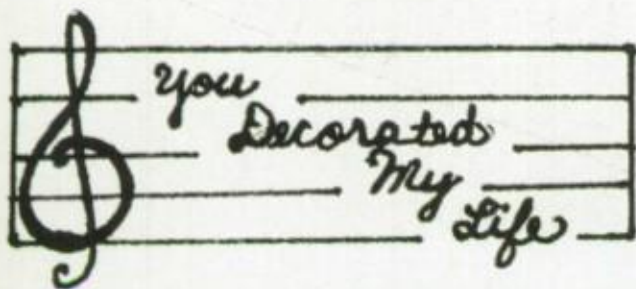 You
Decorated
My
Life